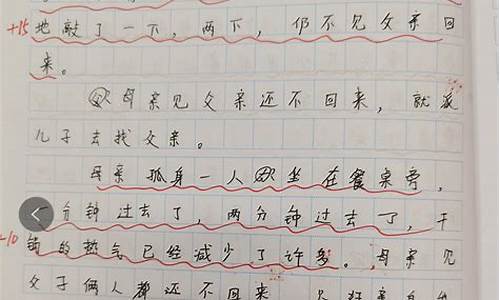 +15 地敲了一下，两下，仍不见父亲回
来。
母亲见父亲还不回来，就派
儿子去找父亲。
母亲孤身一人坐在餐桌旁，
一分钟过去了，两分钟过去了，干
+10 锅的热气已经减少了许多。母亲见
父子俩人都还不回来